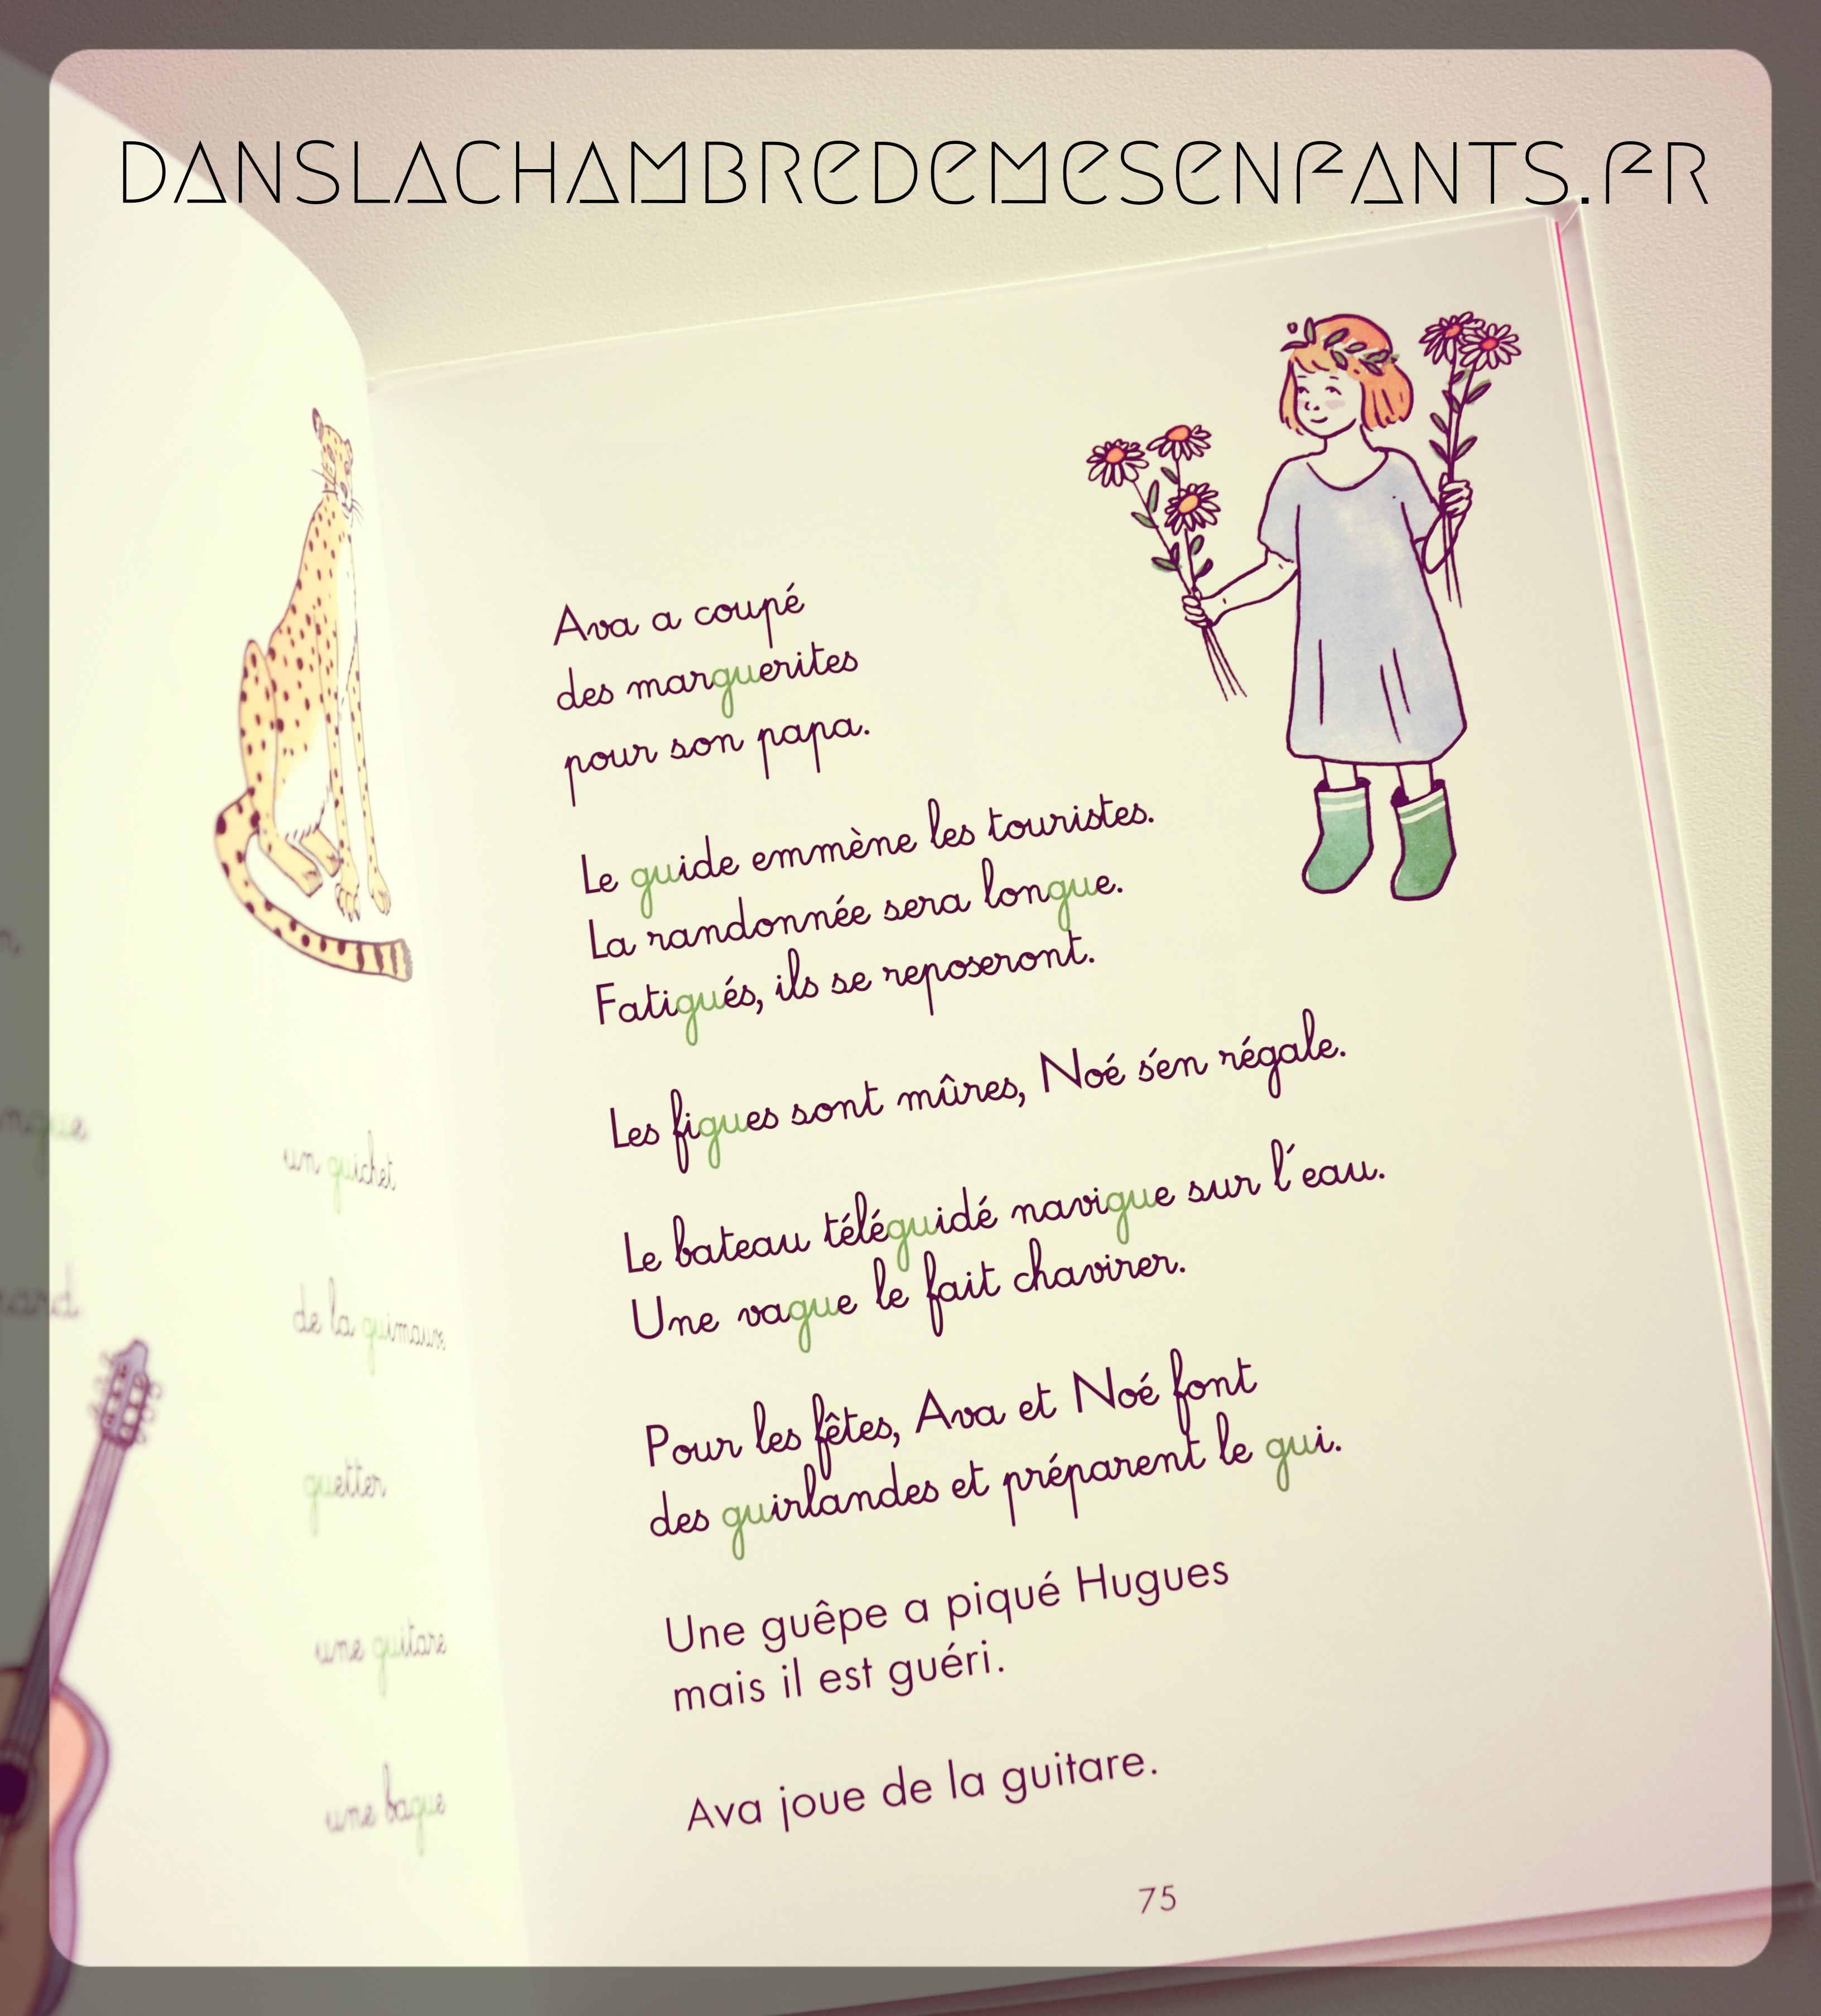 DANSLACHAMBREDEMESENFANTS.FR
un guichet
de la guimauve
guetter
une guitare
une bague
Ava a coupé
des marguerites
pour son papa.
Le guide emmène les touristes.
La randonnée sera longue.
Fatigués, ils se reposeront.
Les figues sont mûres, Noé s'en régale.
Le bateau téléguidé navigue sur l'eau.
Une vague le fait chavirer.
Pour les fêtes, Ava et Noé font
des guirlandes et préparent le gui.
Une guêpe a piqué Hugues
mais il est guéri.
Ava joue de la guitare.
75